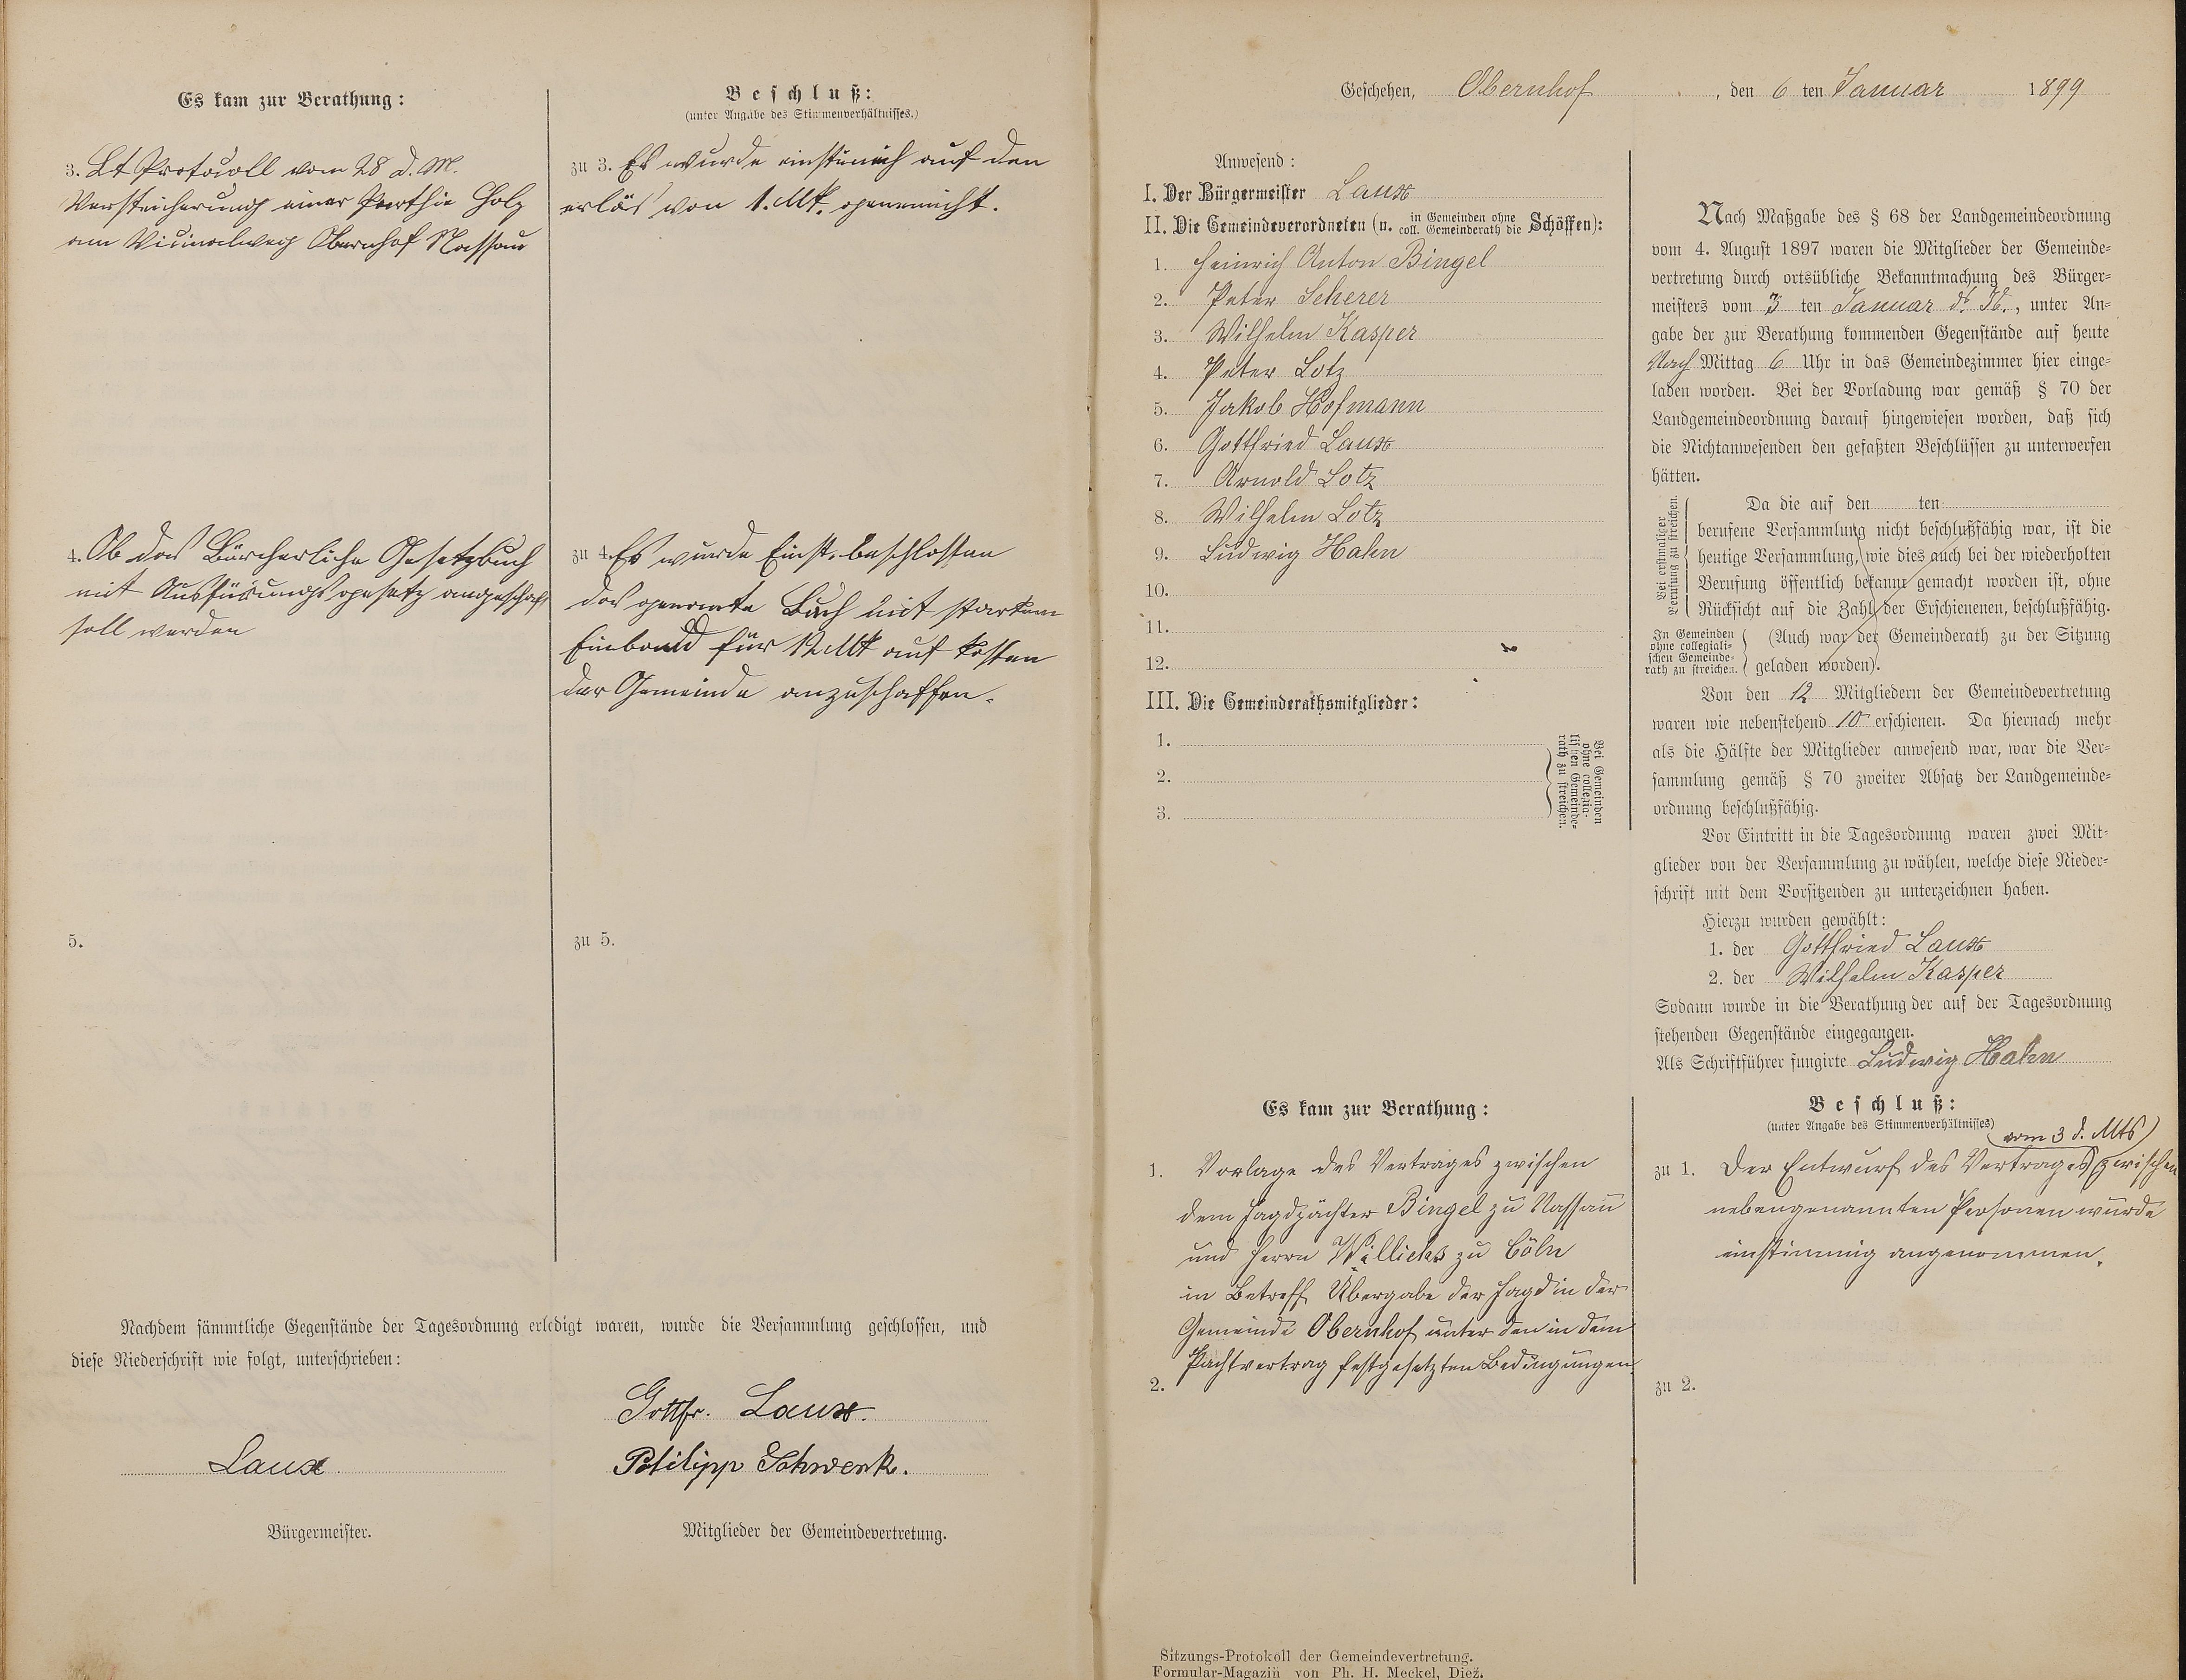 Es kam zur Berathung:
3. Lt Protocoll vom 28 d. M.
Versteicherung einer Parthie Holz
am Vicinalweg Obernhof Nassau
4. Ob das Bürcherliche Gesetzbuch
mit Ausfürungsgesetz angeschaft
soll werden
5.
Beschluß:
(unter Angabe des Stimmenverhältnisses.)
zu 3. Es wurde einstimich auf den
erlös von 1. Mk. genemicht.
zu 4. Es wurde Einst. beschlossen
das genante Buch mit starkem
Einband für 12 Mk auf kosten
der Gemeinde anzuschaffen.
zu 5.
Nachdem sämmtliche Gegenstände der Tagesordnung erledigt waren, wurde die Versammlung geschlossen, und
diese Niederschrift wie folgt, unterschrieben:
Gottfr. Laux.
Laux
Philipp Schwenk.
Bürgermeister.
Mitglieder der Gemeindevertretung.
Geschehen, Obernhof, den 6 ten Januar 1899
Anwesend:
I. Der Bürgermeister Laux
II. Die Gemeindeverordneten (u. in Gemeinden ohne coll. Gemeinderath die Schöffen):
1. Heinrich Anton Bingel
2. Peter Scherer
3. Wilhelm Kasper
4. Peter Lotz
5. Jakob Hofmann
6. Gottfried Laux
7. Arnold Lotz
8. Wilhelm Lotz
9. Ludwig Hahn
10.
11.
12.
III. Die Gemeinderathsmitglieder:
1.
2.
3.
Bei Gemeinden
ohne collegia-
lischen Gemeinde-
rath zu streichen.
Nach Maßgabe des § 68 der Landgemeindeordnung
vom 4. August 1897 waren die Mitglieder der Gemeinde-
vertretung durch ortsübliche Bekanntmachung des Bürger-
meisters vom 3 ten Januar ds. Js., unter An-
gabe der zur Berathung kommenden Gegenstände auf heute
Nach Mittag 6 Uhr in das Gemeindezimmer hier einge-
laden worden. Bei der Vorladung war gemäß § 70 der
Landgemeindeordnung darauf hingewiesen worden, daß sich
die Nichtanwesenden den gefaßten Beschlüssen zu unterwerfen
hätten.
Bei erstmaliger
Berufung zu streichen.
Da die auf den ten
berufene Versammlung nicht beschlußfähig war, ist die
heutige Versammlung, wie dies auch bei der wiederholten
Berufung öffentlich bekannt gemacht worden ist, ohne
Rücksicht auf die Zahl der Erschienenen, beschlußfähig.
In Gemeinden
ohne collegiali-
schen Gemeinde-
rath zu streichen.
(Auch war der Gemeinderath zu der Sitzung
geladen worden).
Von den 12 Mitgliedern der Gemeindevertretung
waren wie nebenstehend 10 erschienen. Da hiernach mehr
als die Hälfte der Mitglieder anwesend war, war die Ver-
sammlung gemäß § 70 zweiter Absatz der Landgemeinde-
ordnung beschlußfähig.
Vor Eintritt in die Tagesordnung waren zwei Mit-
glieder von der Versammlung zu wählen, welche diese Nieder-
schrift mit dem Vorsitzenden zu unterzeichnen haben.
Hierzu wurden gewählt:
1. der Gottfried Laux
2. der Wilhelm Kasper
Sodann wurde in die Berathung der auf der Tagesordnung
stehenden Gegenstände eingegangen.
Als Schriftführer fungirte Ludwig Hahn
Es kam zur Berathung:
1. Vorlage des Vertrages zwischen
dem Jagdpächter Bingel zu Nassau
und Herrn Willichs zu Cöln
in Betreff Übergabe der Jagd in der
Gemeinde Obernhof unter den in dem
Pachtvertrag festgesetzten Bedingungen.
2.
Beschluß:
(unter Angabe des Stimmenverhältnisses)
vom 3 d. Mts
zu 1. Der Entwurf des Vertrages zwischen
nebengenannten Personen wurde
einstimmig angenommen.
zu 2.
Sitzungs-Protokoll der Gemeindevertretung.
Formular-Magazin von Ph. H. Meckel, Diez.